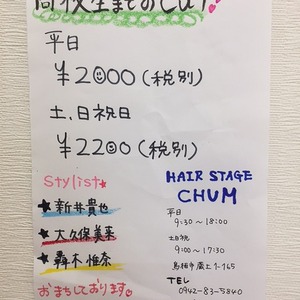 高校生までのCut
平日
¥2000(税別)
土、日祝日
¥2200(税別)
Stylist
★新井貴也
★大久保美来
★轟木惟奈
おまちしております
HAIR STAGE
CHUM
平日
9:30~18:00
土日祝
9:00~17:30
鳥栖市蔵上1-165
TEL
0942-83-5840